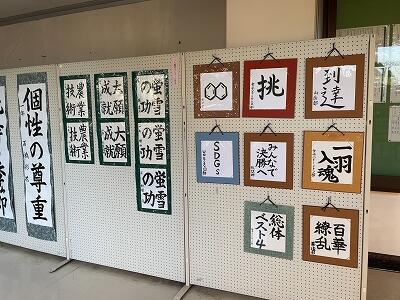 個性の尊重
農業
技術
農業
技術
大願
成就
大願
成就
蛍雪
の功
蛍雪
の功
蛍雪
の功
挑
到達
SDGs
みんなで
決勝へ
一羽
入魂
総体
ベスト4
百華
繚乱